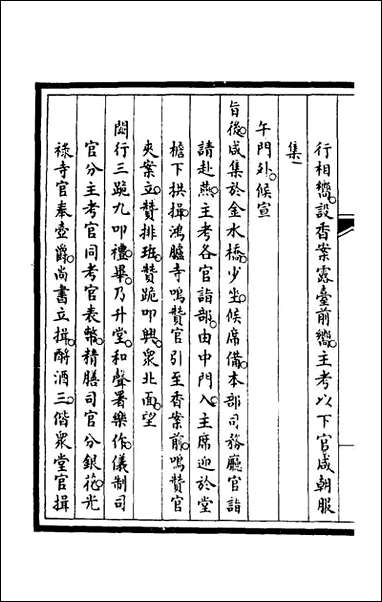 行相嚮設香案露臺前嚮主考以下官咸朝服
集
午門外候宣
旨後咸集於金水橋少坐候席備本部司務廳官詣
請赴燕主考各官詣部由中門入主席迎於堂
檐下拱揖鴻臚寺鳴贊官引至香案前鳴贊官
夾案立贊排班贊跪叩興衆北面望
闕行三跪九叩禮畢乃升堂和聲署樂作儀制司
官分主考官同考官表幣精膳司官分銀花光
祿寺官奉壺爵尚書立揖酹酒三偕衆堂官揖